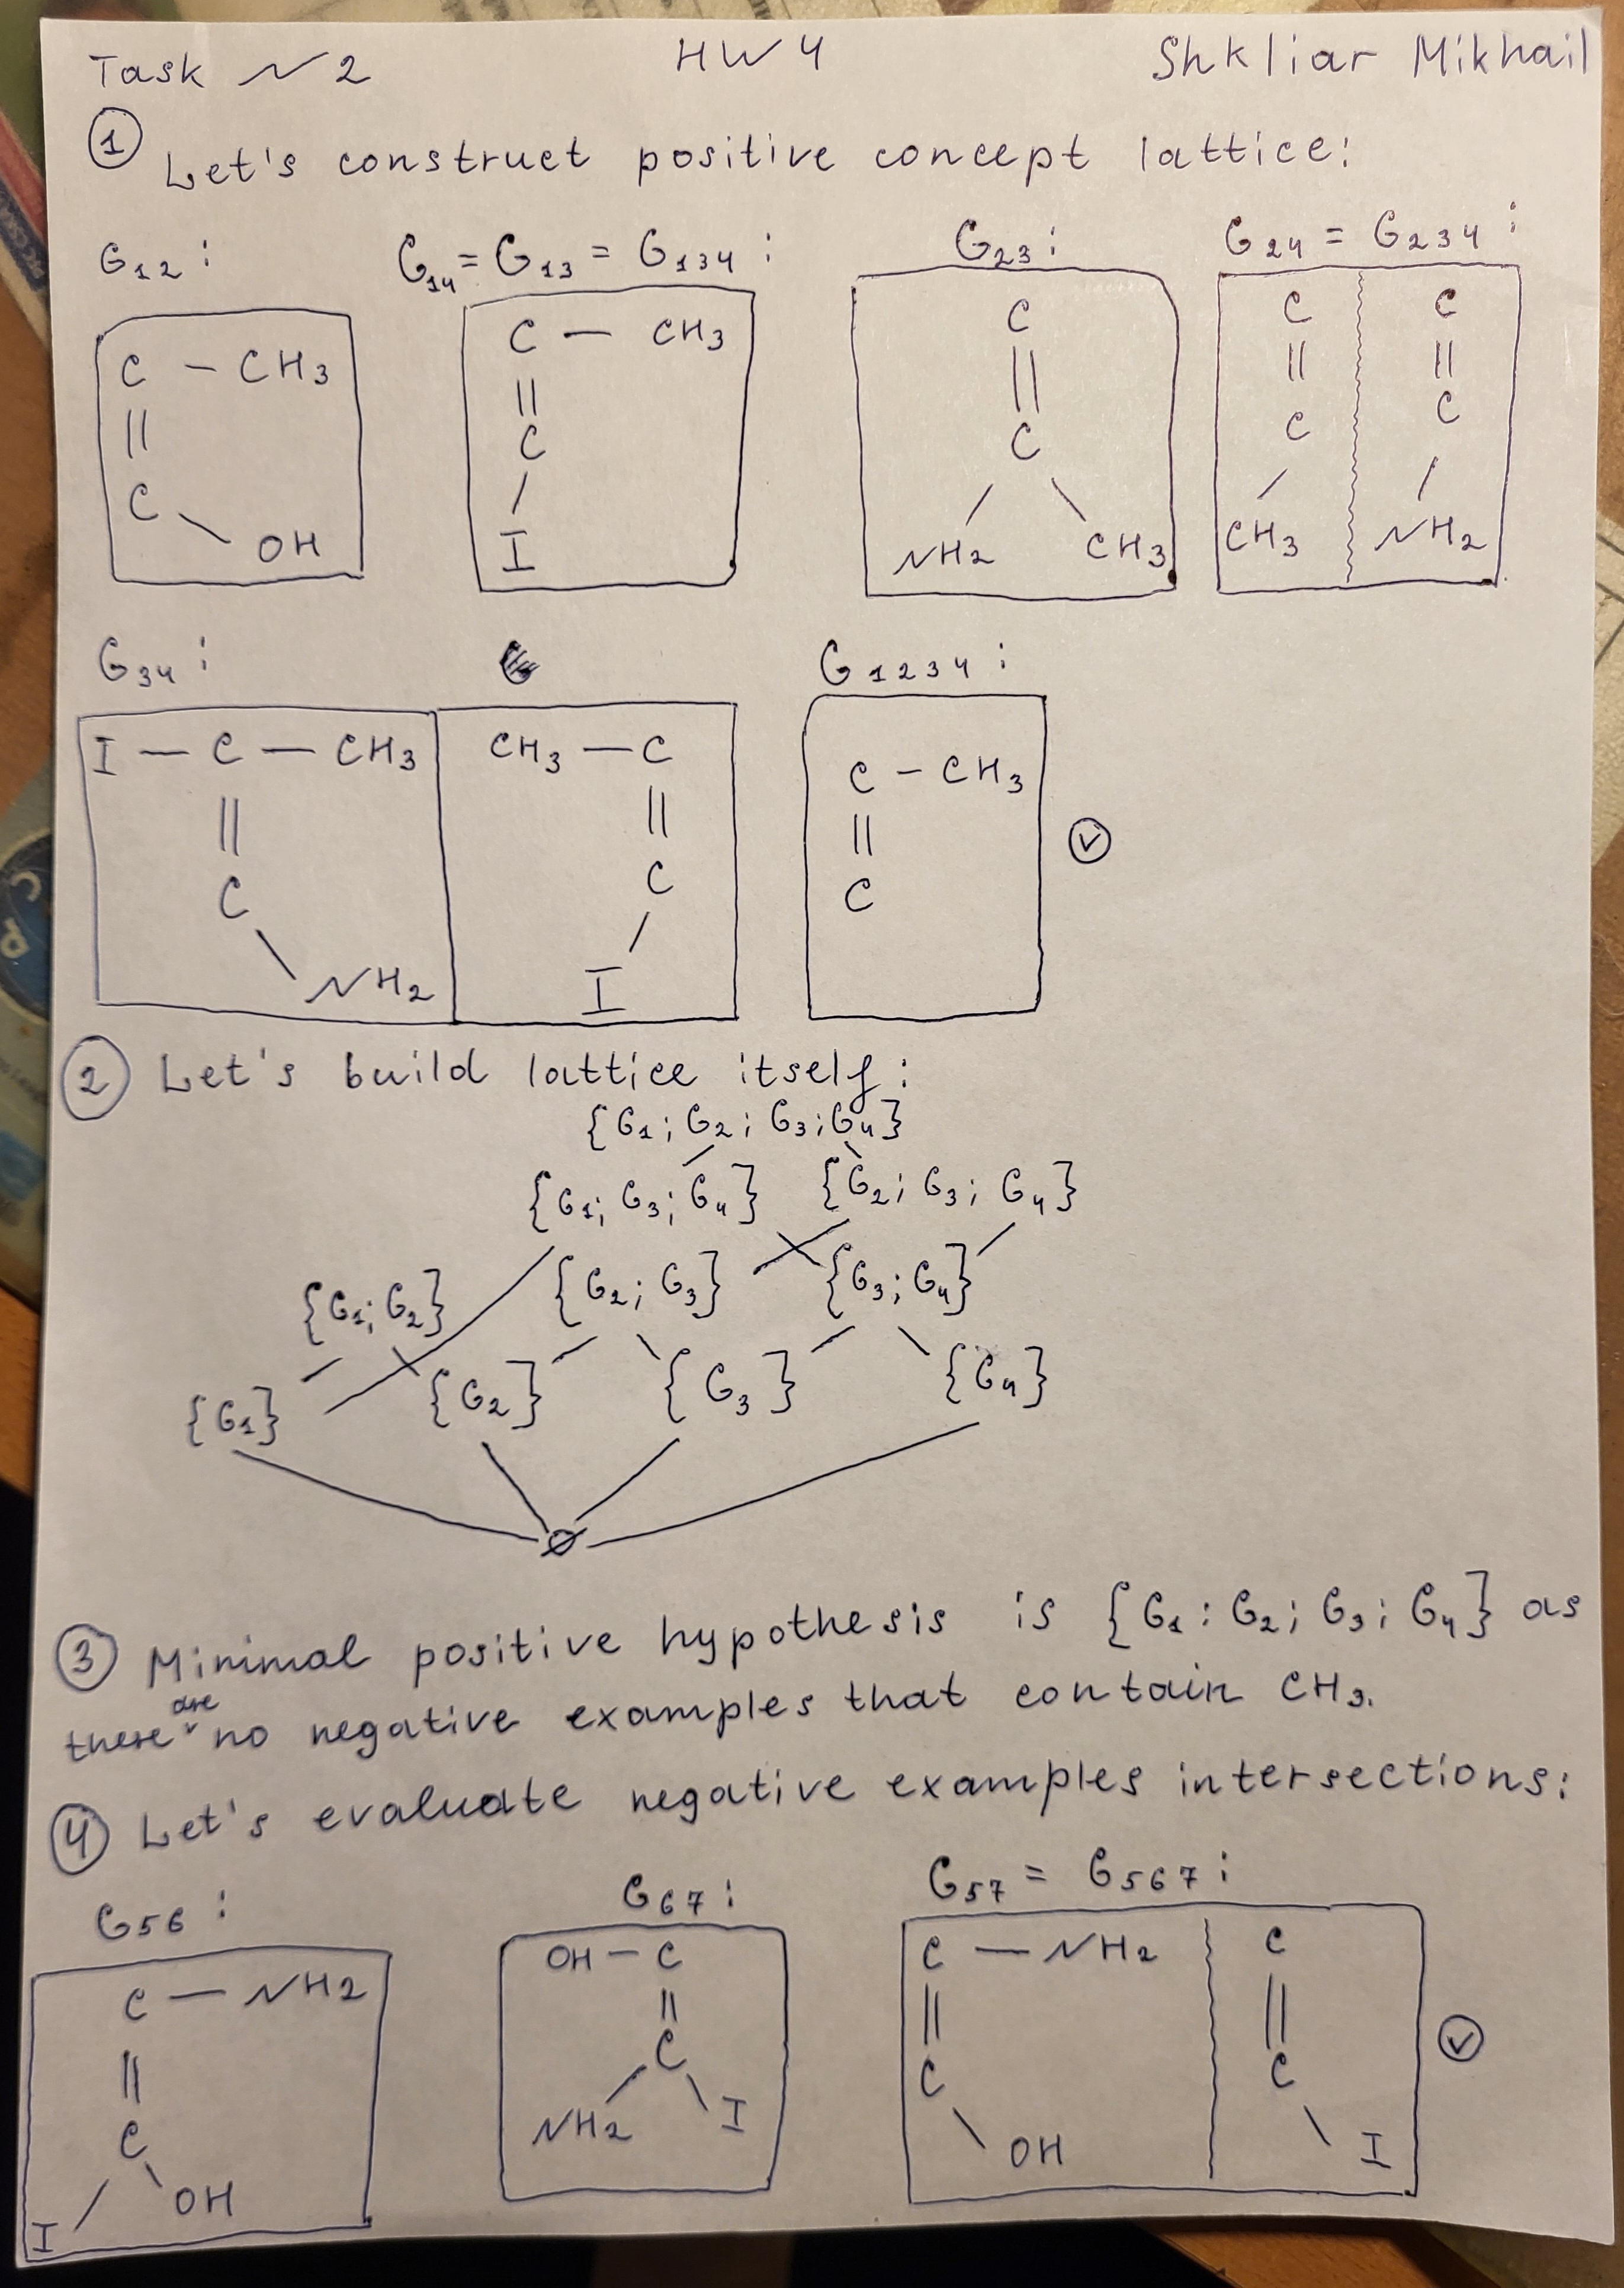 Task N2 HW 4 Shkliar Mikhail
① Let's construct positive concept lattice:
G12: G14 = G13 = G134: G23: G24 = G234:
C - CH3
||
C
\
OH
C — CH3
||
C
/
I
C
||
C
/ \
NH2 CH3
C
||
C
/
CH3
C
||
C
/
NH2
G34: G1234:
I — C — CH3
||
C
\
NH2
CH3 — C
||
C
/
I
C - CH3
||
C
② Let's build lattice itself:
{G1; G2; G3; G4}
{G1; G3; G4} {G2; G3; G4}
{G1; G2} {G2; G3} {G3; G4}
{G1} {G2} {G3} {G4}
∅
③ Minimal positive hypothesis is {G1: G2; G3; G4} as
there are no negative examples that contain CH3.
④ Let's evaluate negative examples intersections:
G56: G67: G57 = G567:
C — NH2
||
C
/ \
I OH
OH — C
||
C
/ \
NH2 I
C — NH2
||
C
\
OH
C
||
C
\
I